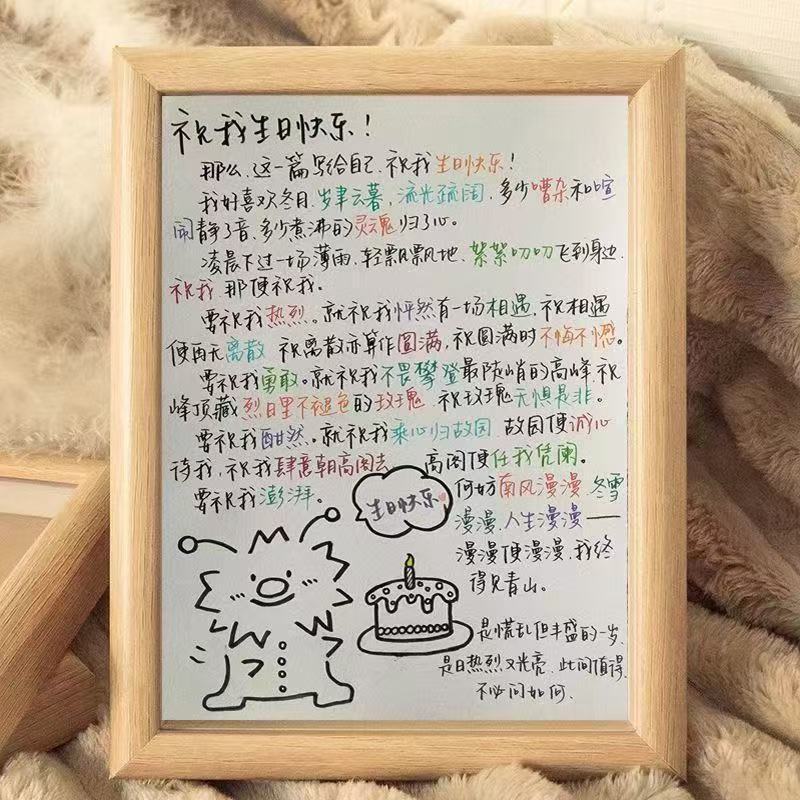 祝我生日快乐！
那么、这一篇写给自己、祝我生日快乐！
我好喜欢冬月、岁聿云暮，流光疏阔，多少嘈杂和喧
闹静了音、多少煮沸的灵魂归了心。
凌晨下过一场薄雨、轻飘飘地、絮絮叨叨飞到身边
祝我、那便祝我。
要祝我热烈。就祝我怦然有一场相遇、祝相遇
便再无离散 祝离散亦算作圆满，祝圆满时不悔不憾。
要祝我勇敢。就祝我不畏攀登最陡峭的高峰、祝
峰顶藏烈日里不褪色的玫瑰 祝玫瑰无惧是非。
要祝我酣然。就祝我乘心归故园 故园便诚心
待我，祝我肆意朝高阁去 高阁便任我凭阑。
要祝我澎湃。
何妨南风漫漫、冬雪
漫漫、人生漫漫——
漫漫便漫漫、我终
得见青山。
生日快乐
是慌乱但丰盛的一岁、
是日热烈又光亮、此间值得、
不必问如何、